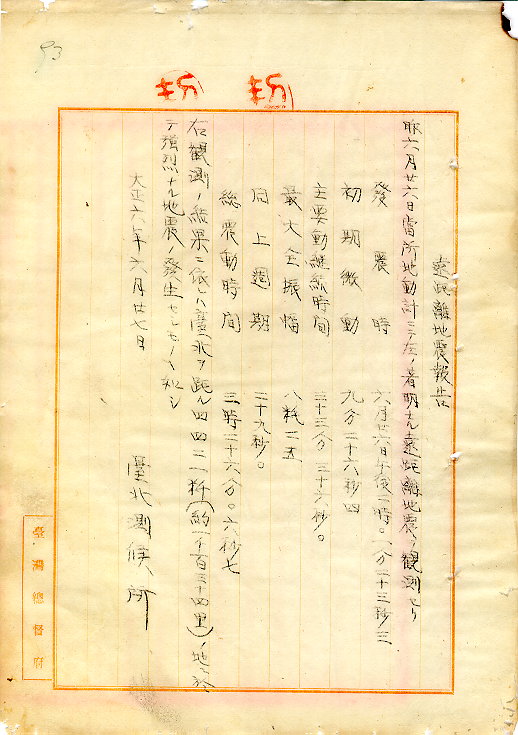 遠距離地震報告
昨六月廿六日當所地動計ニテ左ノ著明ナル遠距離地震ヲ観測セリ
發震時 六月廿六日午後一時〇一分二十三秒三
初期微動 九分二十六秒四
主要動継続時間 二十三分三十六秒〇
最大全振幅 八粍二五
同上週期 二十九秒〇
総震動時間 三時二十六分〇六秒七
右観測ノ結果ニ依レハ臺北ヲ距ル四四二一粁(約一千百三十四里)ノ地ニ於
テ強烈ナル地震ノ發生セシモノト知ル
大正六年六月廿七日
臺北測候所
臺灣總督府
93